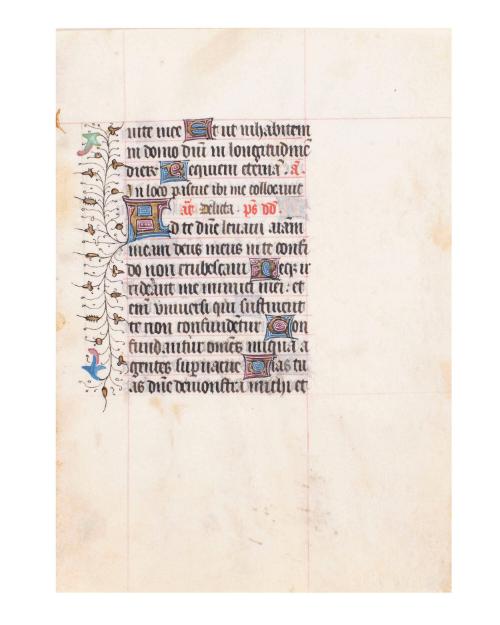 uite mee Et ut inhabitem
in domo dñi in longitudinē
dierꝫ Requiem eternā. ā.
In loco pascue ibi me collocauit
añ Delicta. ps̄ dd̄.
Ad te dñe leuaui aīam
meam deus meus in te confi
do non erubescam Neqꝫ ir
rideant me inimici mei: et
enī vniuersi qui sustinent
te non confundētur Con
fundantur omēs iniqua a
gentes supuacue Uias tu
as dñe demonstra michi et